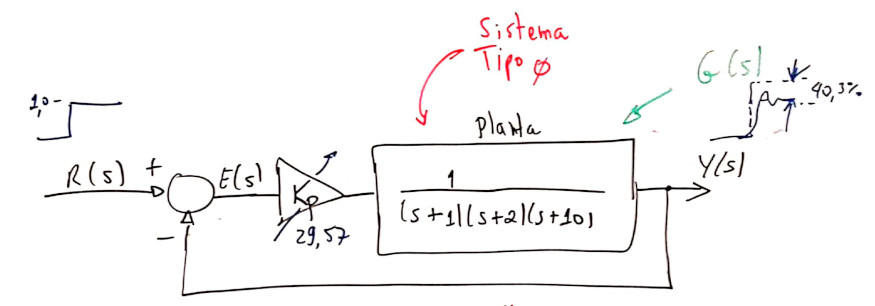 Sistema
Tipo ϕ
G(s)
1,0
40,3%
Planta
R(s)
+
E(s)
Kp
29,57
1
(s+1)(s+2)(s+10)
Y(s)
−